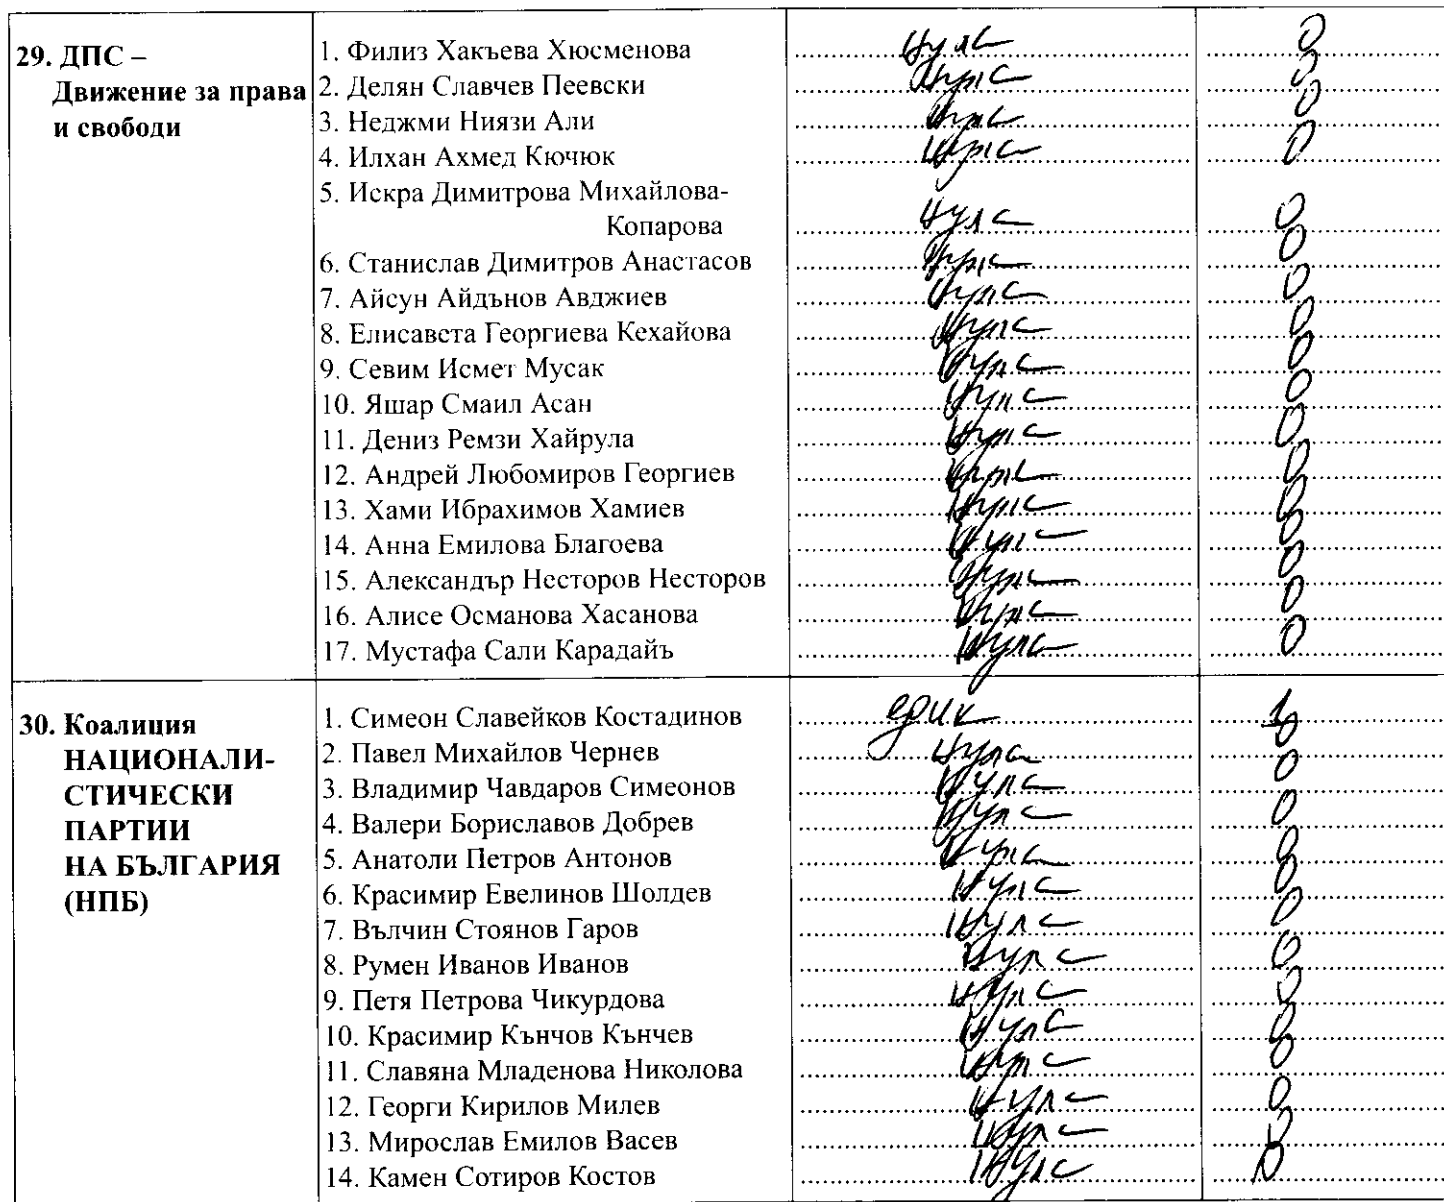 29. ДПС –
Движение за права
и свободи
1. Филиз Хакъева Хюсменова нула 0
2. Делян Славчев Пеевски нула 0
3. Неджми Ниязи Али нула 0
4. Илхан Ахмед Кючюк нула 0
5. Искра Димитрова Михайлова-
Копарова нула 0
6. Станислав Димитров Анастасов нула 0
7. Айсун Айдънов Авджиев нула 0
8. Елисавета Георгиева Кехайова нула 0
9. Севим Исмет Мусак нула 0
10. Яшар Смаил Асан нула 0
11. Дениз Ремзи Хайрула нула 0
12. Андрей Любомиров Георгиев нула 0
13. Хами Ибрахимов Хамиев нула 0
14. Анна Емилова Благоева нула 0
15. Александър Несторов Несторов нула 0
16. Алисе Османова Хасанова нула 0
17. Мустафа Сали Карадайъ нула 0
30. Коалиция
НАЦИОНАЛИ-
СТИЧЕСКИ
ПАРТИИ
НА БЪЛГАРИЯ
(НПБ)
1. Симеон Славейков Костадинов един 1
2. Павел Михайлов Чернев нула 0
3. Владимир Чавдаров Симеонов нула 0
4. Валери Бориславов Добрев нула 0
5. Анатоли Петров Антонов нула 0
6. Красимир Евелинов Шолдев нула 0
7. Вълчин Стоянов Гаров нула 0
8. Румен Иванов Иванов нула 0
9. Петя Петрова Чикурдова нула 0
10. Красимир Кънчов Кънчев нула 0
11. Славяна Младенова Николова нула 0
12. Георги Кирилов Милев нула 0
13. Мирослав Емилов Васев нула 0
14. Камен Сотиров Костов нула 0